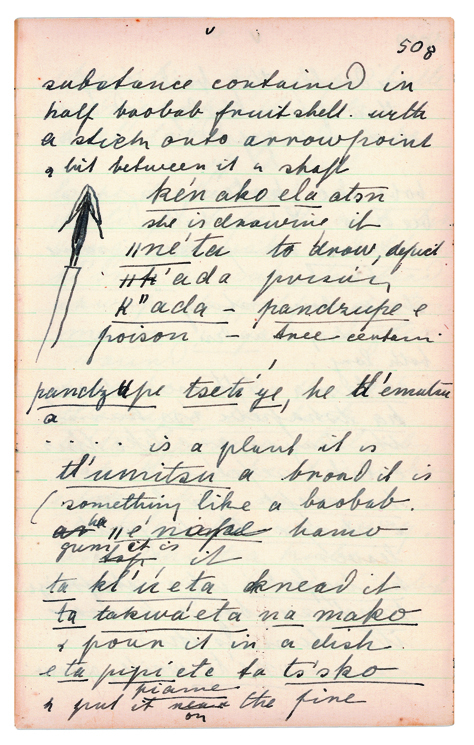 508
substance contained in
half baobab fruitshell. with
a stick onto arrowpoint
& bit between it & shaft
kén ako ela atsn
she is drawing it
ǁné ta to draw, depict
k'ada poison
k"ada - pandzupe e
poison - tree certain
pandzupe tseti'ye, he tl'ematsu
a
. . . . is a plant it is
tl'umitsu a broad it is
(something like a baobab.
ha ǁé hamo
gum it is it
ta kl'úeta knead it
ta takwáeta na mako
& pour it in a dish
e ta pipi ete ta ts'sko
piame
& put it near the fire
on